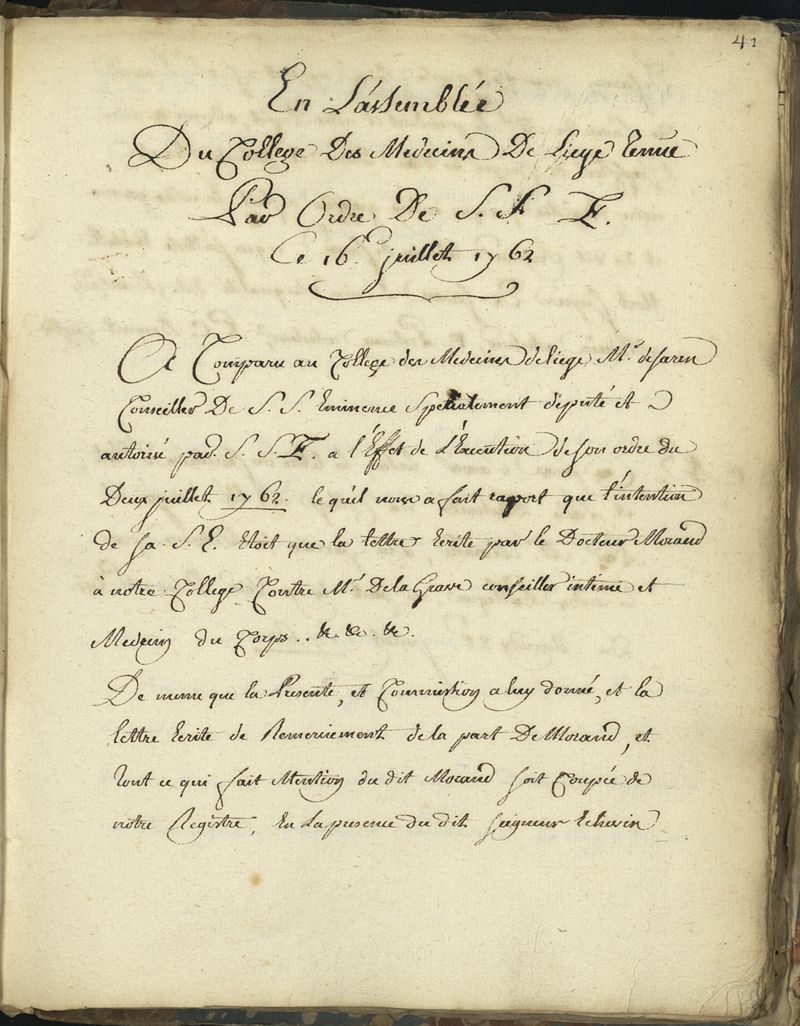 41
En L'assemblée
Du College Des Medecins De Liege tenüe
Par Ordre De S. S. E.
Ce 16e juillet 1762
A Comparu au College des Medecins de liege Mr. de
Conseiller De S. S. Eminence Spetialement deputé et
autorisé par. S. S. E. a l'Effet de L'Execution de son ordre du
Deux juillet 1762. le quel nous a fait raport que l'intention
de sa. S. E. étoit que la lettre écrite par le Docteur Morand
à notre College Contre Mr. De la Grave conseiller intime et
Medecin du Corps .. &. &c. &c.
De meme que la Presente, et Commission a luy donné, et la
lettre écrite de Remerciement de la part De Morand, et
tout ce qui fait Mention du dit Morand soit Coupée de
notre Registre, En La presence du dit seigneur Echevin